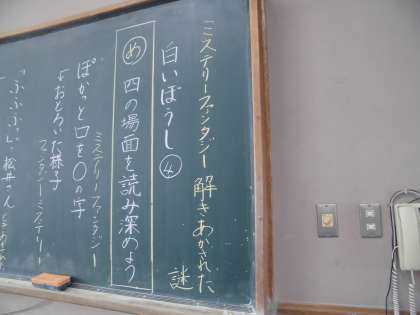 ミステリーファンタジー 解きあかされた謎
白いぼうし④
め 四の場面を読み深めよう
ミステリーファンタジー
ぽかっと口を〇の字
よおどろいた様子
ファンタジーミステリー
「ふふふっ」松井さん